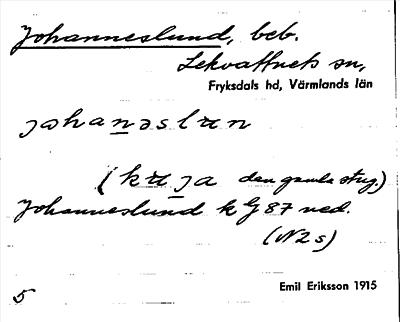 Johanneslund, beb.
Lekvattnets sn,
Fryksdals hd, Värmlands län
johanəslun
(kuja den gamla stug.)
Johanneslund k G 87 ned.
(N2s)
5
Emil Eriksson 1915